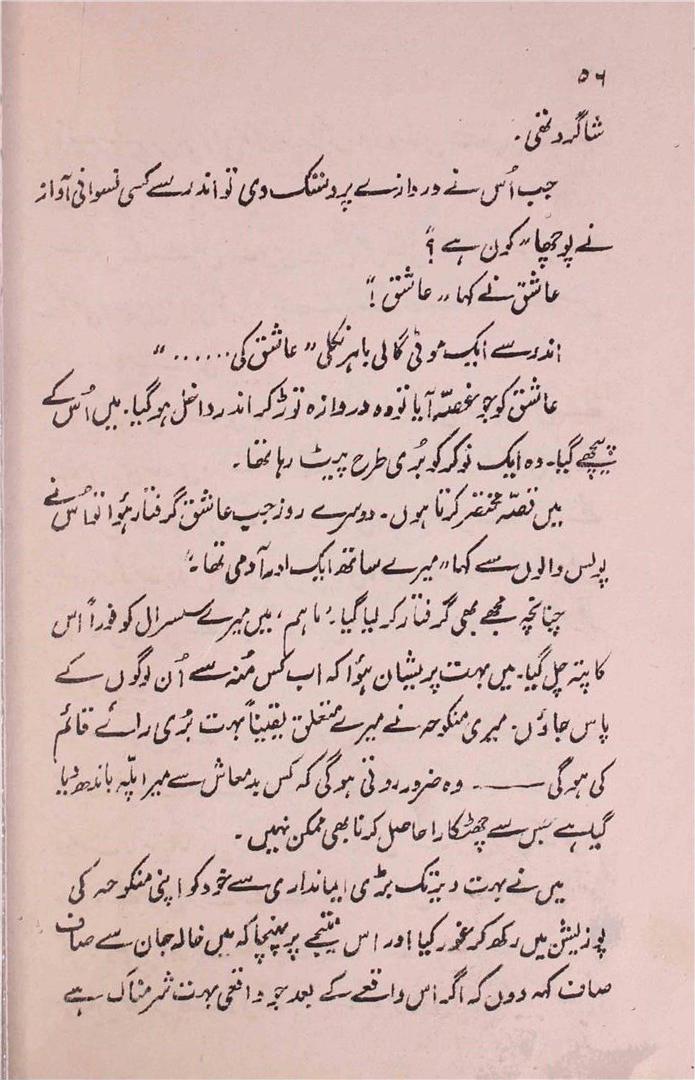 ۵۶
شاگرد تھی۔
جب اُس نے دروازے پر دستک دی تو اندر سے کسی نسوانی آواز
نے پوچھا ”کون ہے ؟“
عاشق نے کہا ”عاشق !“
اندر سے ایک موٹی گالی باہر نکلی ”عاشق کی ......“
عاشق کو جو غصّہ آیا تو وہ دروازہ توڑ کر اندر داخل ہو گیا۔ میں اُس کے
پیچھے گیا۔ وہ ایک نوکر کو بُری طرح پیٹ رہا تھا۔
میں قصّہ مختصر کرتا ہوں۔ دوسرے روز جب عاشق گرفتار ہوٗا تو اُس نے
پولس والوں سے کہا ”میرے ساتھ ایک اور آدمی تھا۔“
چنانچہ مجھے بھی گرفتار کر لیا گیا۔ ’ماہم‘ میں میرے سسرال کو فوراً اس
کا پتہ چل گیا۔ میں بہت پریشان ہوٗا کہ اب کس مُنہ سے اُن لوگوں کے
پاس جاؤں۔ میری منکوحہ نے میرے متعلق یقیناً بہت بُری رائے قائم
کی ہوگی —— وہ ضرور روتی ہوگی کہ کس بدمعاش سے میرا پلّہ باندھ دیا
گیا ہے جس سے چھٹکارا حاصل کرنا بھی ممکن نہیں۔
میں نے بہت دیر تک بڑی ایمانداری سے خود کو اپنی منکوحہ کی
پوزیشن میں رکھ کر غور کیا اور اس نتیجے پر پہنچا کہ میں خالہ جان سے صاف
صاف کہہ دوں کہ اگر اس واقعے کے بعد جو واقعی بہت شرمناک ہے